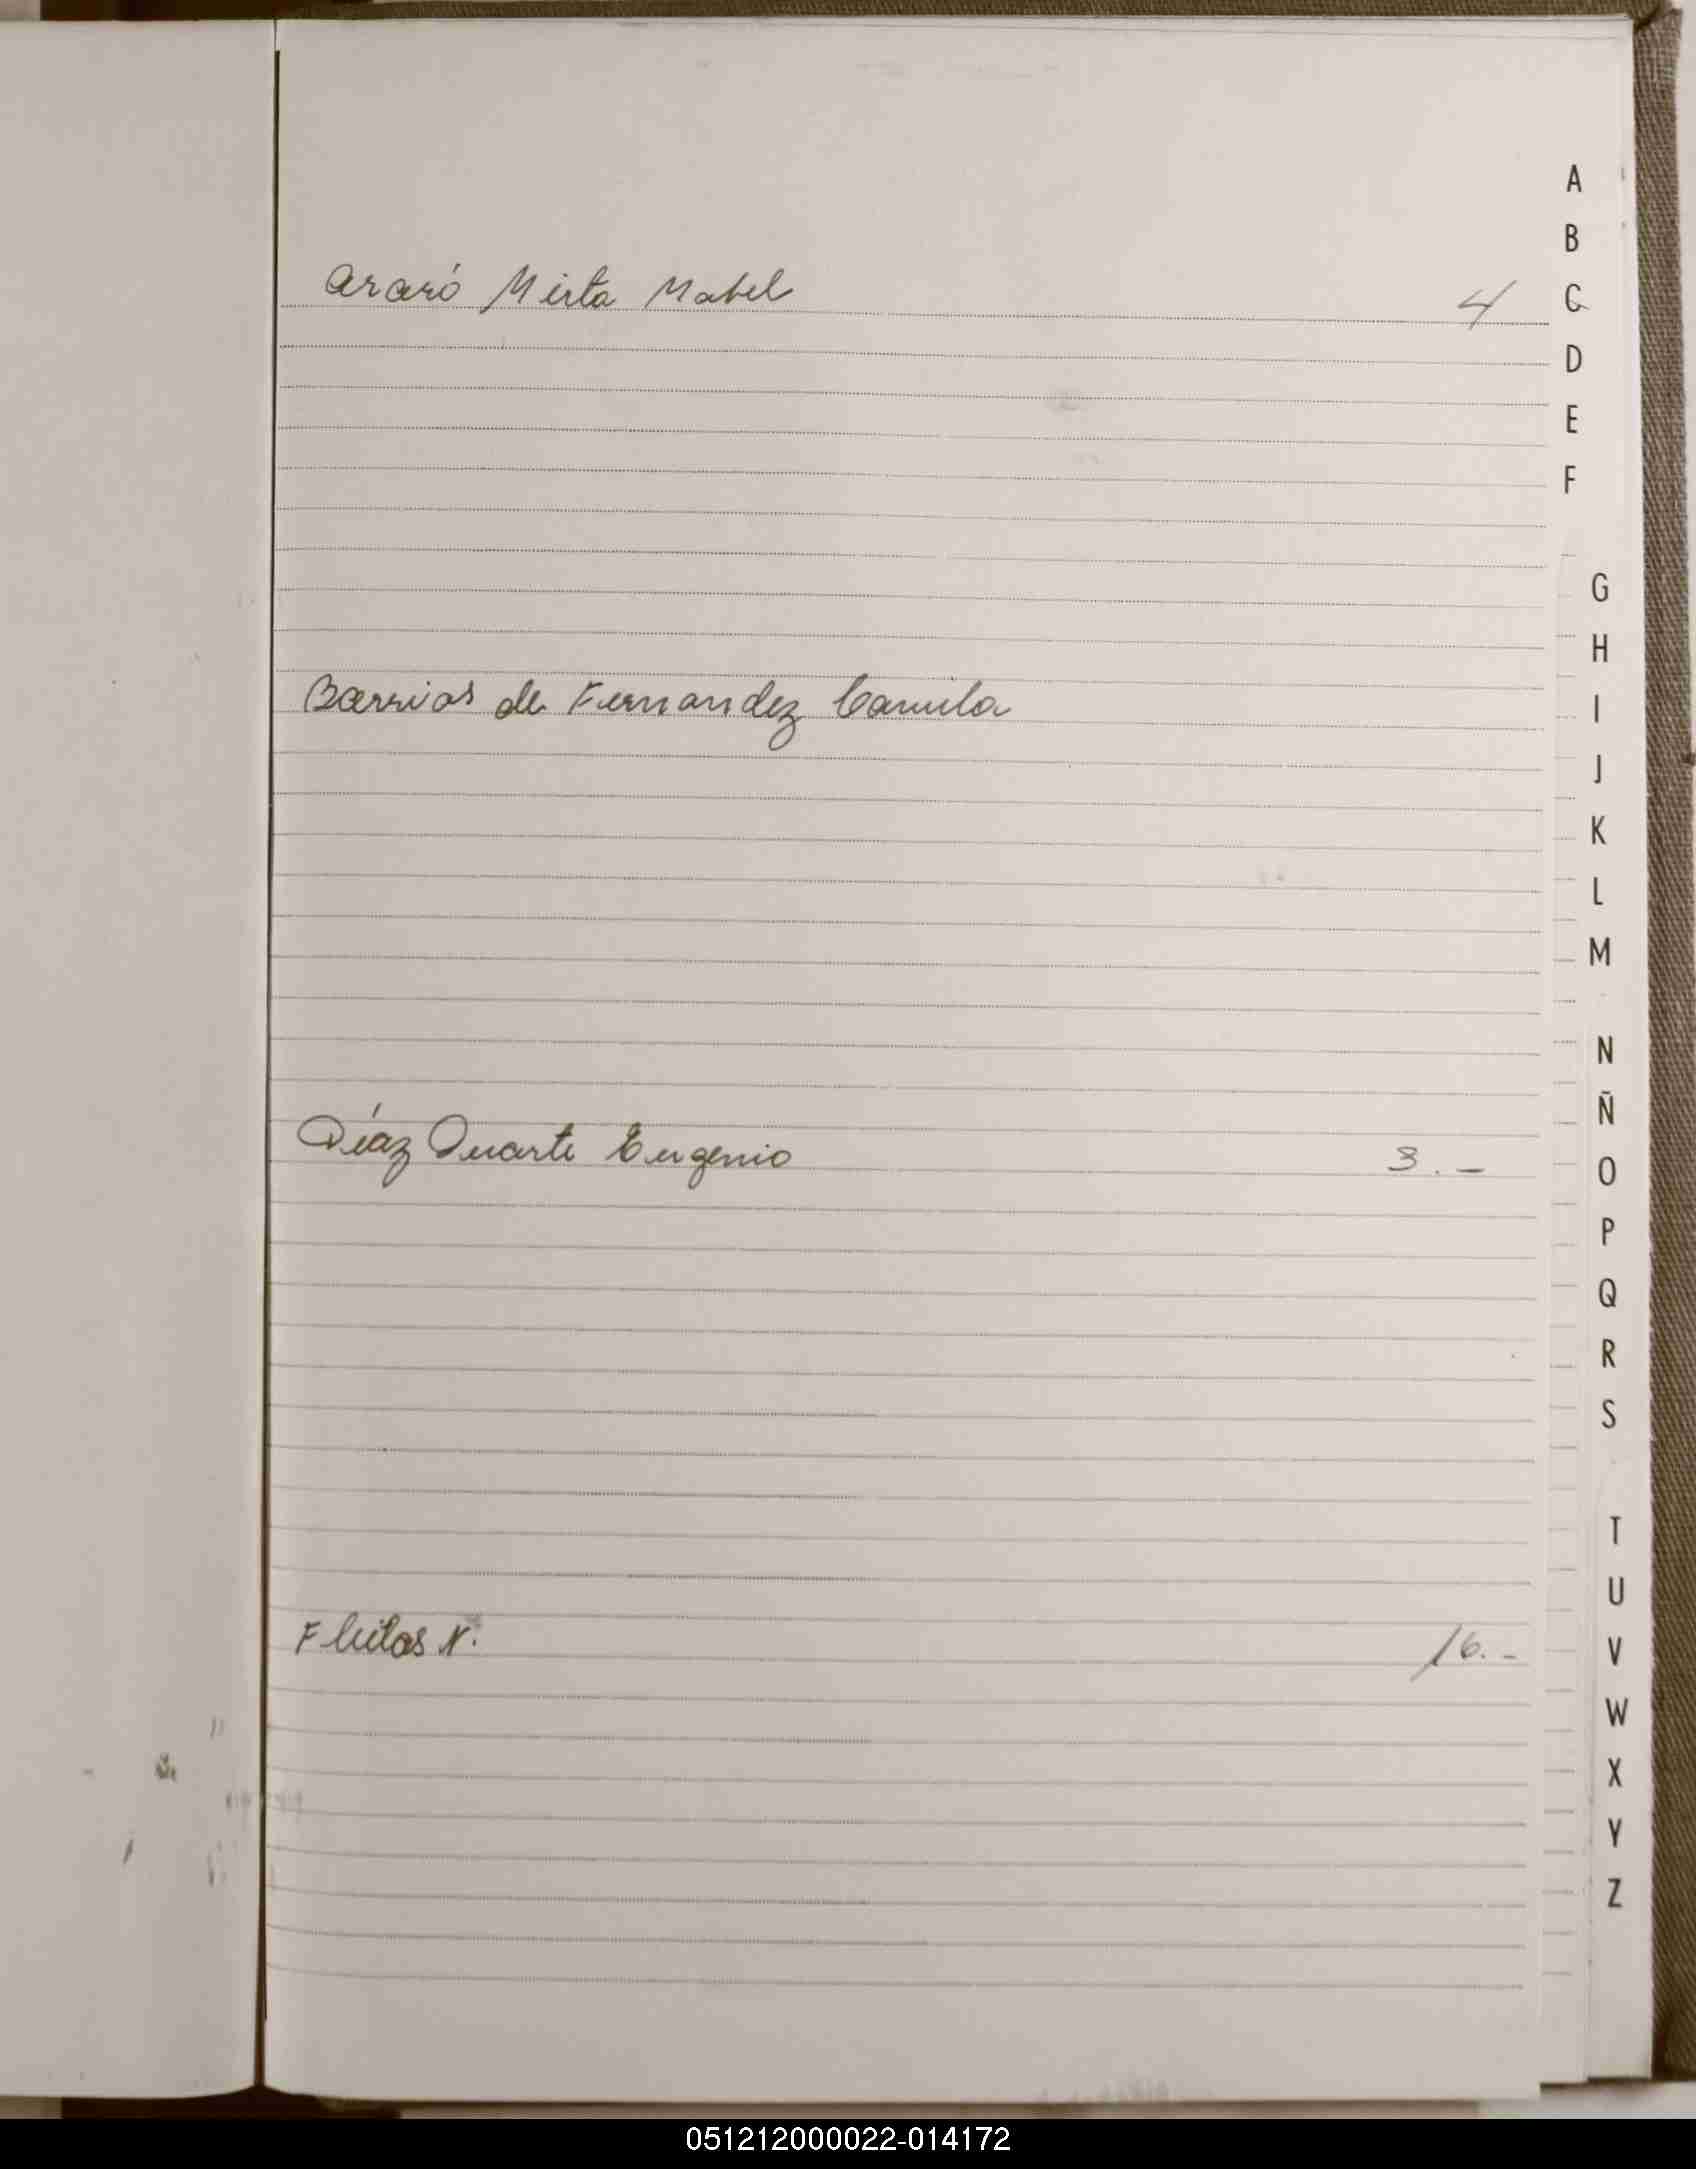 Araró Mirta Mabel 4
Barrios de Fernandez Camila
Díaz Duarte Eugenio 3.-
Fleitas N. 16.-
A
B
C
D
E
F
G
H
I
J
K
L
M
N
Ñ
O
P
Q
R
S
T
U
V
W
X
Y
Z
051212000022-014172